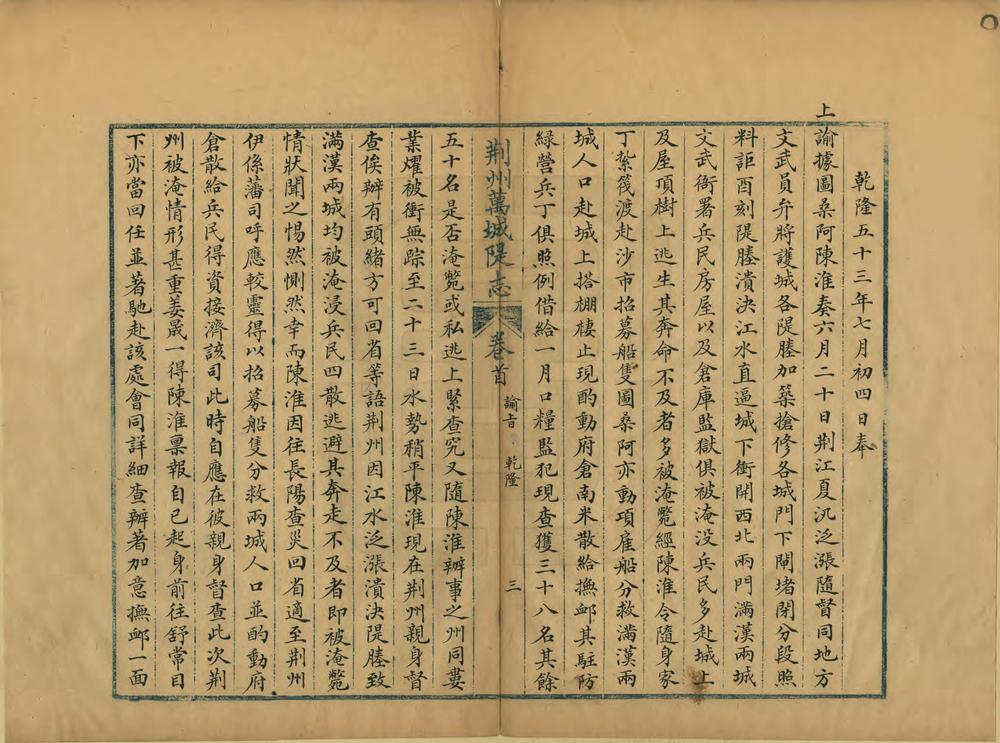 乾隆五十三年七月初四日奉
上諭據圖桑阿陳淮奏六月二十日荆江夏汛泛漲隨督同地方
文武員弁將護城各隄塍加築搶修各城門下閘堵閉分段照
料詎酉刻隄塍潰決江水直逼城下衝開西北兩門滿漢兩城
文武衙署兵民房屋以及倉庫監獄俱被淹没兵民多赴城上
及屋頂樹上逃生其奔命不及者多被淹斃經陳淮令隨身家
丁紮筏渡赴沙市招募船隻圖桑阿亦動項雇船分救滿漢兩
城人口赴城上搭棚棲止現酌動府倉南米散給撫邺其駐防
綠營兵丁俱照例借給一月口糧監犯現查獲三十八名其餘
荆州萬城隄志 卷首 諭旨 乾隆 三
五十名是否淹斃或私逃上緊查究又隨陳淮辦事之州同婁
業燿被衝無踪至二十三日水勢稍平陳淮現在荆州親身督
查俟辦有頭緒方可回省等語荆州因江水泛漲潰決隄塍致
滿漢兩城均被淹浸兵民四散逃避其奔走不及者即被淹斃
情狀聞之惕然惻然幸而陳淮因往長陽查災回省適至荆州
伊係藩司呼應較靈得以招募船隻分救兩城人口並酌動府
倉散給兵民得資接濟該司此時自應在彼親身督查此次荆
州被淹情形甚重姜晟一得陳淮稟報自已起身前往舒常目
下亦當回任並著馳赴該處會同詳細查辦著加意撫邺一面